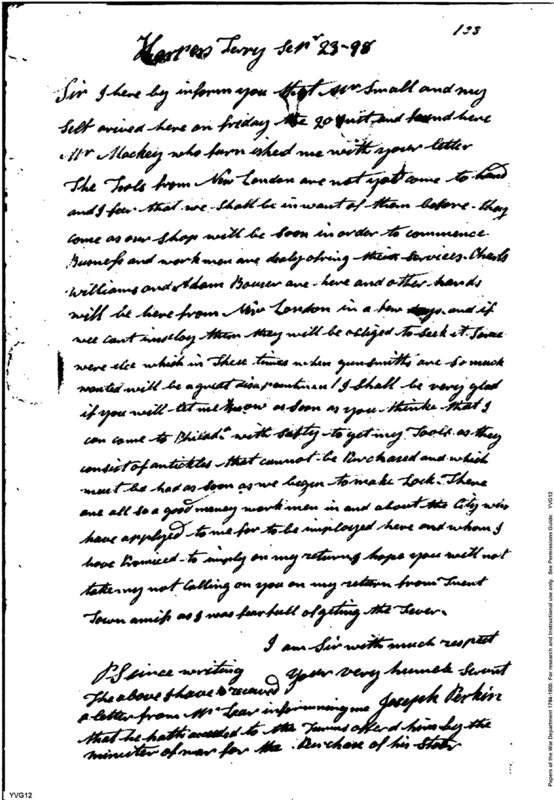 133
Harpers Ferry Sepr 23-98
Sir I here by inform you that Mr Small and my
Self arived here on friday the 20 and found here
Mr Mackey who furn ished me with your letter
The Tools from New London are not yat come to hand
and I fear that we shall be in want of them before they
come as our Shop will be soon in order to commence
Business and work men are dealy ofring their Services. Charls
Williams and Adam Bouser are here and other hands
will be here from New London in a few days and if
wee cant imploy them they will be obliged to Seek it Some
were else which in These times when gunsmiths are so much
wanted will be a great disapointment I shall be very glad
if you will let me know as soon as you thinke that I
can come to Philada with safty to get my Tools as they
consist of antickles that cannot be Purchased and which
must be had as soon as we begen to make Lock. There
are all so a good meney work men in and about the City who
have applyed to me for to be imployed here and whom I
have Promiced to imploy on my return I hope you will not
take my not Calling on you on my return from Trent
Town amiss as I was fear full of geting the Fever.
I am Sir with much respect
PS since writing Your very humble Servnt
The above I have received Joseph Perkin
a letter from Mr Lear informing me
that he hath acceeded to the Terms offerd him by the
minister of war for the Purchase of his
YVG12
Papers of the War Department 1784-1800. For research and instructional use only. See Permissions Guide. YVG12